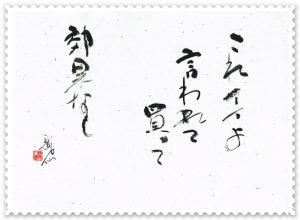 これイイよ
言われて
買って
効果なし